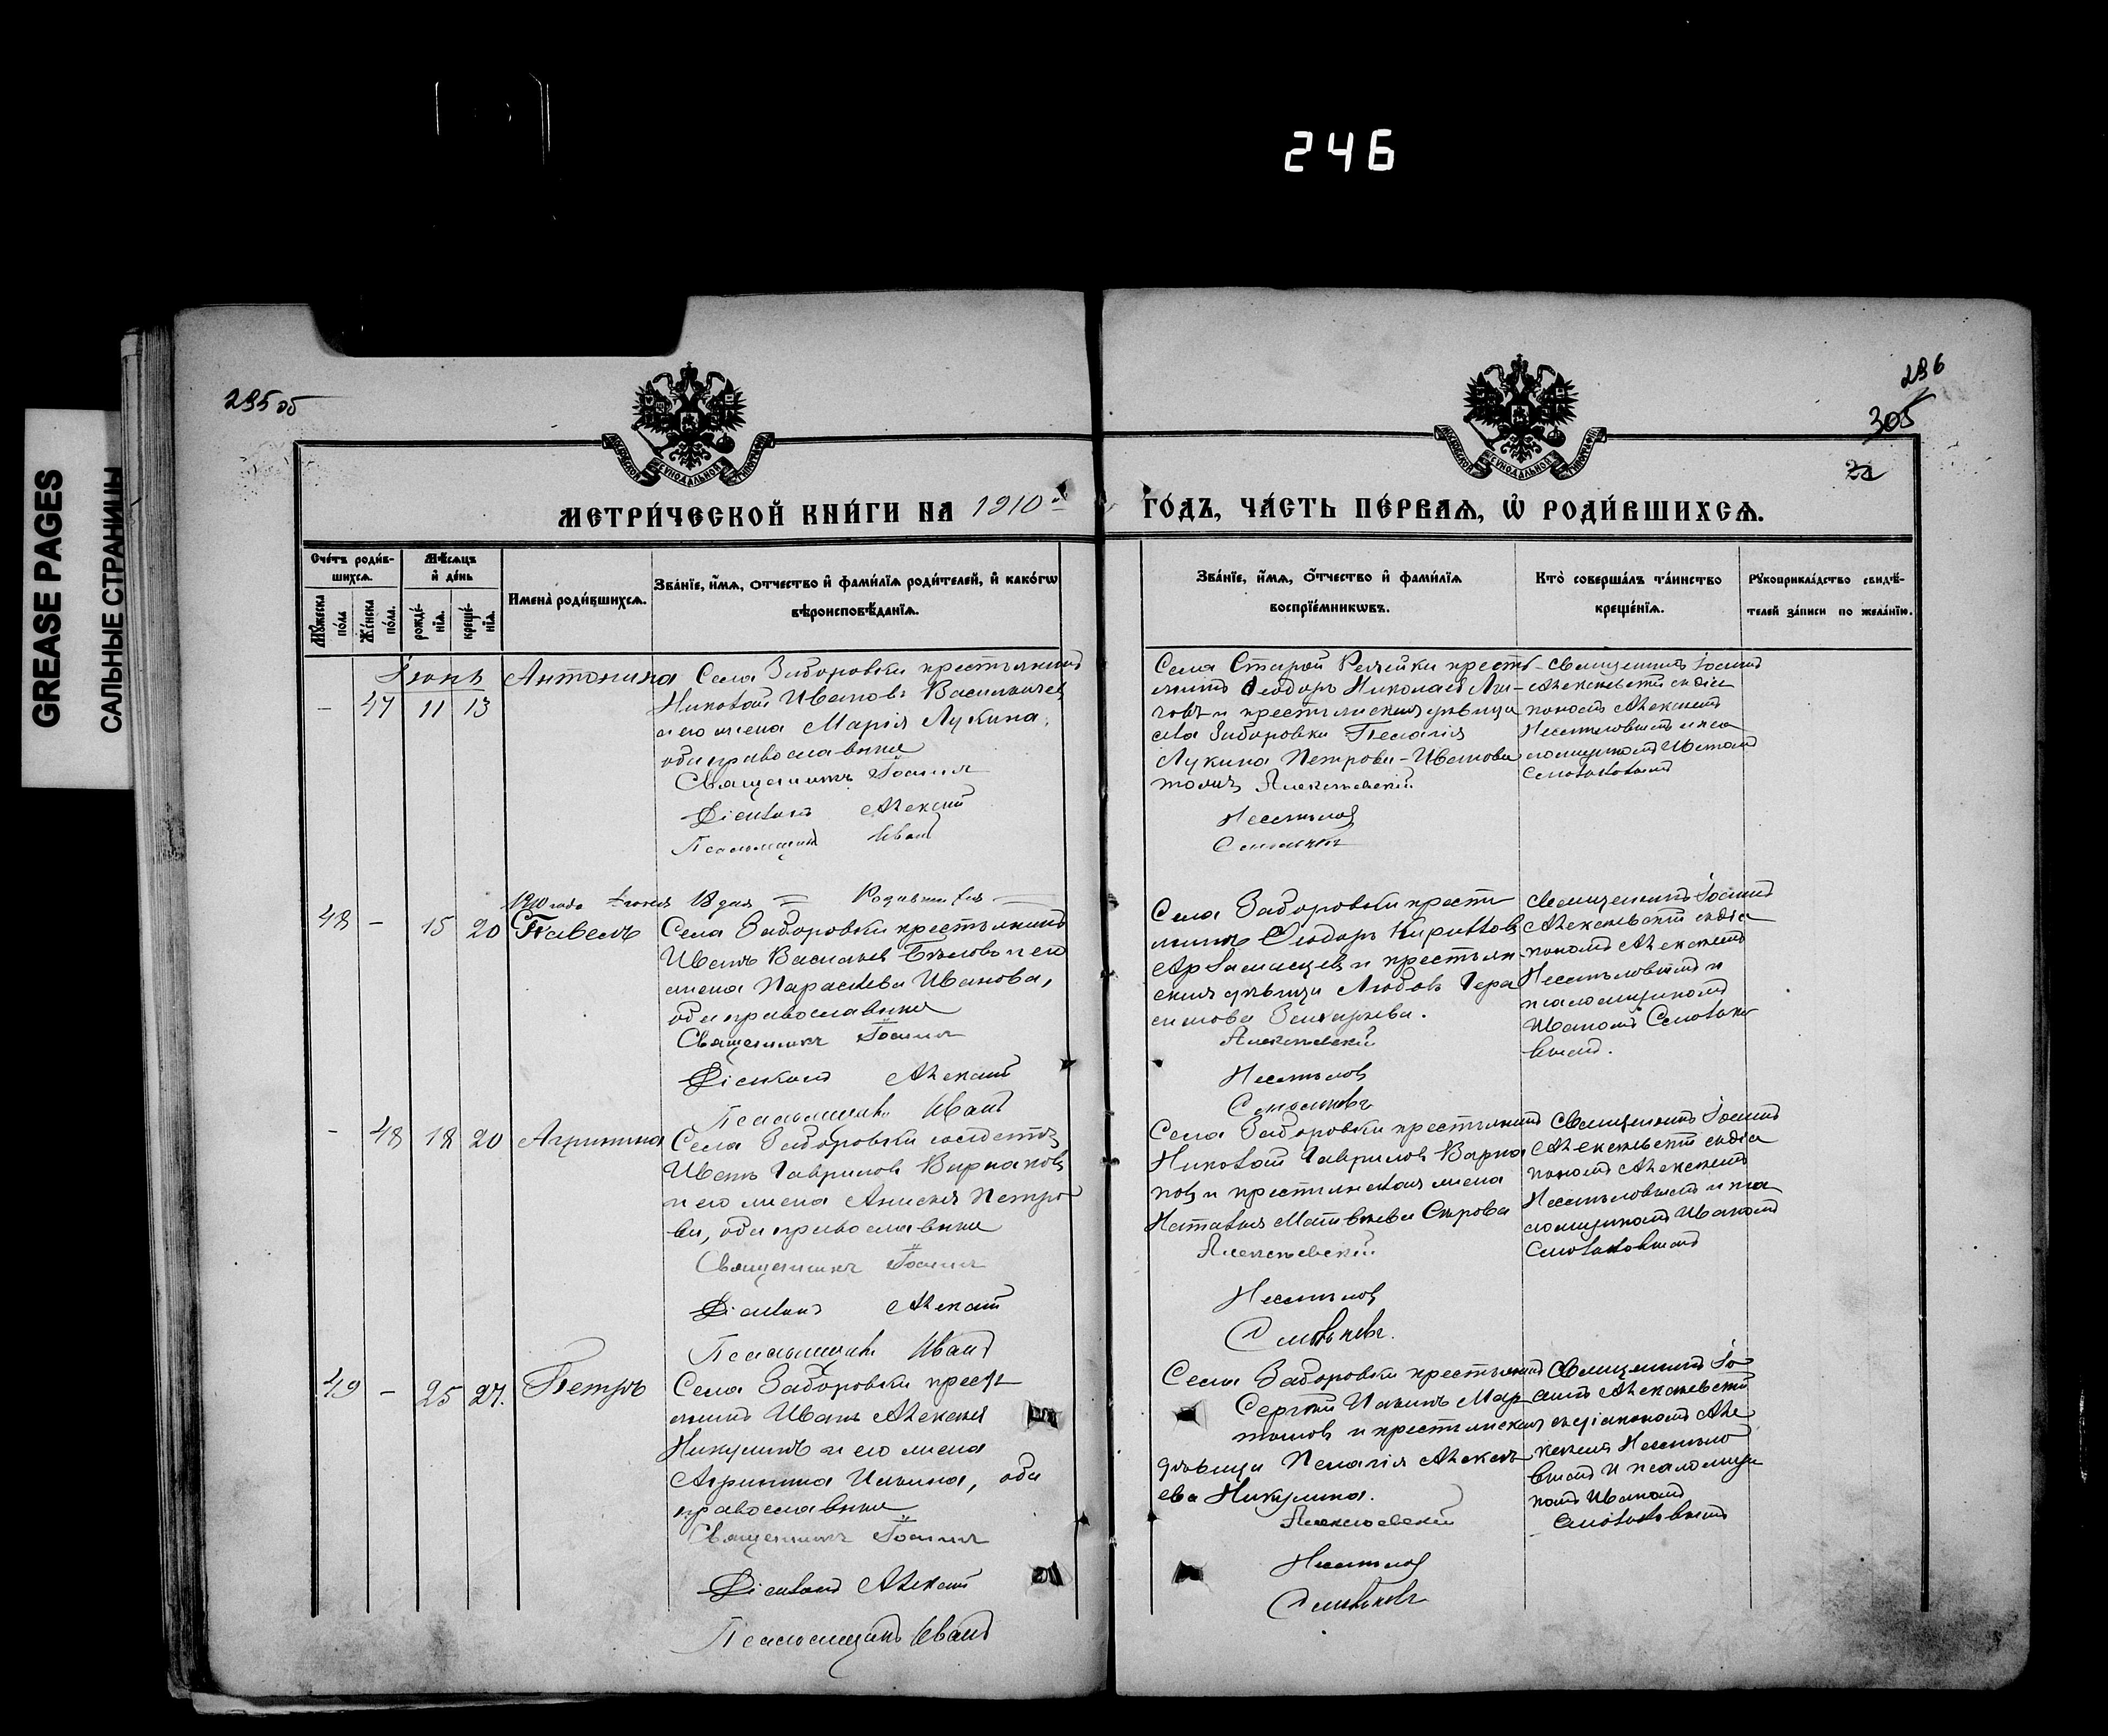 246
GREASE PAGES
САЛЬНЫЕ СТРАНИЦЫ
295 об
296
305
МЕТРИ́ЧЕСКОЙ КНИ́ГИ НА 1910й ГО́ДЪ, ЧА́СТЬ ПЕ́РВАѦ, Ѿ РОДИ́ВШИХСѦ.
Сче́тъ роди́в-
шихсѧ.
Мѣ́сѧцъ
и҆ де́нь
Мꙋ́жеска по́ла
Же́нска по́ла.
рожде́-нїѧ.
креще́-нїѧ.
Имена̀ роди́вшихсѧ.
Зва́нїе, и҆́мѧ, о҆́тчество и҆ фами́лїѧ роди́телей, и҆ како́гѡ
вѣроисповѣ́данїѧ.
Зва́нїе, и҆́мѧ, о҆́тчество и҆ фами́лїѧ
воспрїе́мникѡвъ.
Кто̀ соверша́лъ та́инство
креще́нїѧ.
Рꙋкоприкла́дство свидѣ́-
телей за́писи по жела́нїю.
Іюнь
- 47 11 13
Антонина
Села Заборовки крестьянинъ
Николай Ивановъ
и его жена Марія Лукина,
оба православные
Священникъ Іоаннъ
Діаконъ Алексий
Псаломщикъ Иванъ
Села Старой Рачейки кресть-
янинъ Ѳеодоръ Николаевъ
и крестьянская дѣвица
села Заборовки Пелагія
Лукина Петрова-Иванова
Алексѣевскій
Несмѣловъ
Смольковъ
Священникъ Іоаннъ
Алексѣевскій съ діа
кономъ Алексѣемъ
Несмѣловымъ и пса
ломщикомъ Иваномъ
Смольковымъ
1910 года Іюня 18 дня = Родившихся
48 - 15 20
Павелъ
Села Заборовки крестьянинъ
Иванъ Васильевъ Бѣловъ и его
жена Параскева Иванова,
оба православные
Священникъ Іоаннъ
Діаконъ Алексий
Псаломщикъ Иванъ
Села Заборовки кресть
янинъ Ѳеодоръ Кирилловъ
Арзамасцевъ и крестьян
ская дѣвица Любовь Гера
симова Захарьева.
Алексѣевскій
Несмѣловъ
Смольковъ
Священникъ Іоаннъ
Алексѣевскій съ діа
кономъ Алексѣемъ
Несмѣловымъ и
псаломщикомъ
Иваномъ Смолько
вымъ.
- 48 18 20
Агрипина
Села Заборовки солдатъ
Иванъ Гавриловъ Варнаковъ
и его жена Анисія Петро
ва, оба православные
Священникъ Іоаннъ
Діаконъ Алексий
Псаломщикъ Иванъ
Села Заборовки крестьянинъ
Николай Гавриловъ Варна
ковъ и крестьянская жена
Наталья Матвѣева Сѣрова
Алексѣевскій
Несмѣловъ
Смольковъ.
Священникъ Іоаннъ
Алексѣевскій съ діа
кономъ Алексѣемъ
Несмѣловымъ и пса
ломщикомъ Иваномъ
Смольковымъ
49 - 25 27.
Петръ
Села Заборовки кресть
янинъ Иванъ Алексѣевъ
Никулинъ и его жена
Агрипина Ильина, оба
православные
Священникъ Іоаннъ
Діаконъ Алексий
Псаломщикъ Иванъ
Села Заборовки крестьянинъ
Сергѣй Ильинъ Мар
тыновъ и крестьянская
дѣвица Пелагія Алексѣ
ева Никулина.
Алексѣевскій
Несмѣловъ
Смольковъ
Священникъ Іо
аннъ Алексѣевскій
съ діакономъ Але
ксѣемъ Несмѣло
вымъ и псаломщи
комъ Иваномъ
Смольковымъ